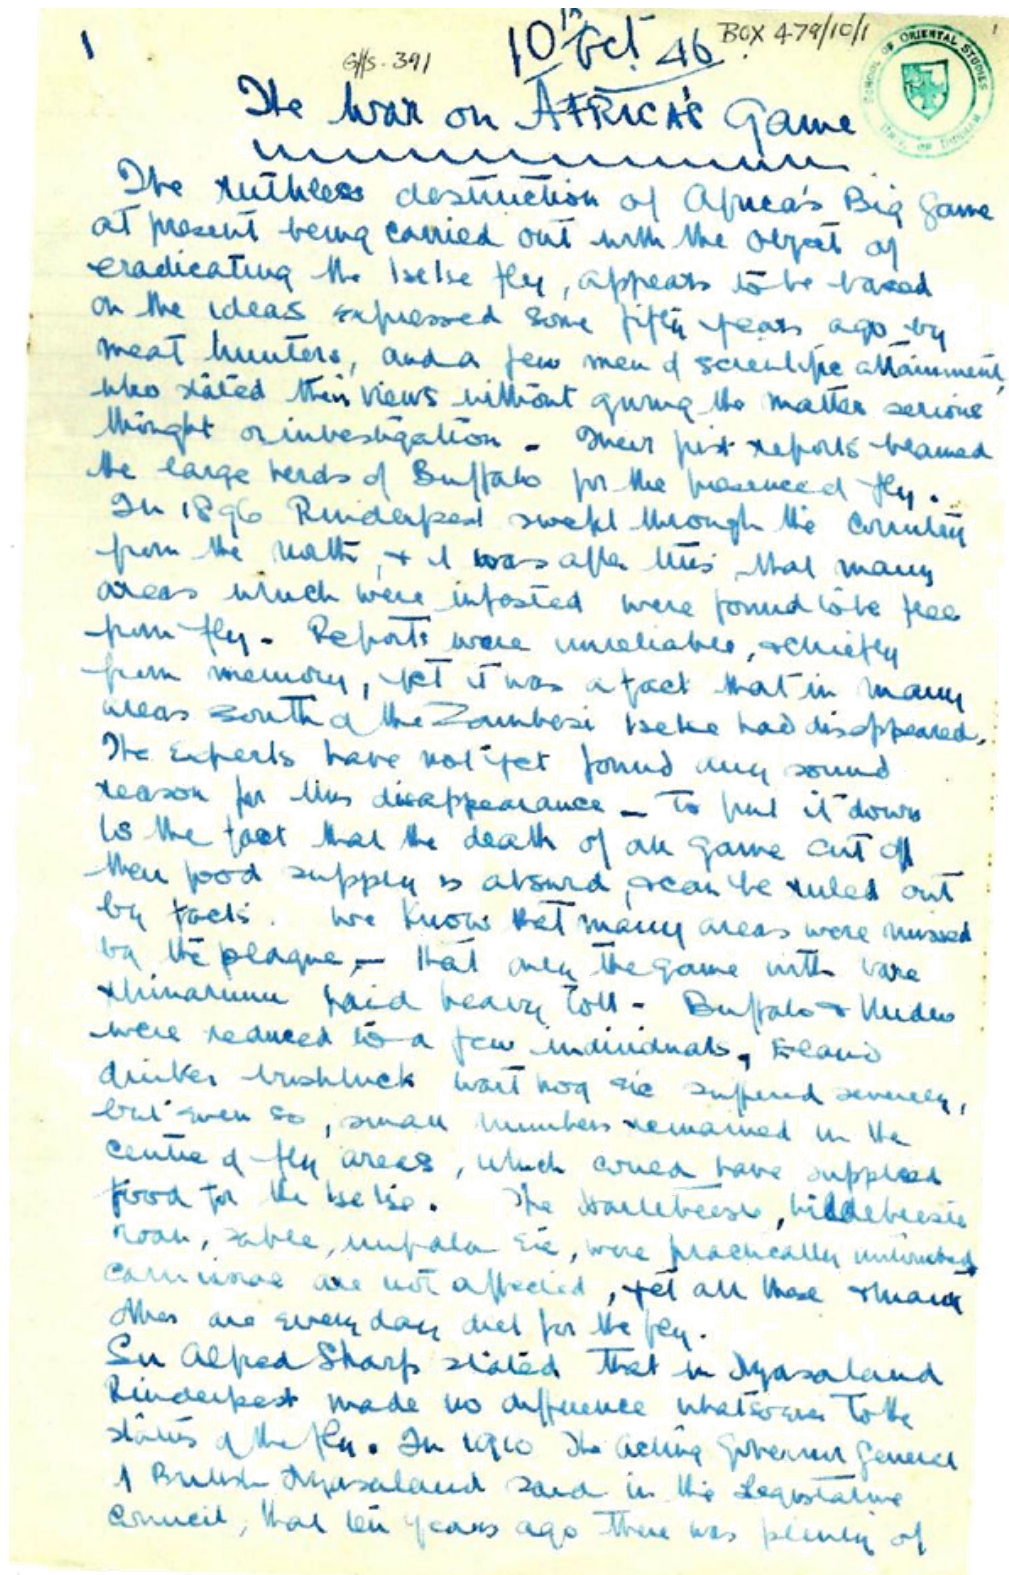 1
10th Oct. 46
BOX 479/10/1
G//S-391
SCHOOL OF ORIENTAL STUDIES
UNIV. OF DURHAM
The War on AFRICA'S Game
The ruthless destruction of Africa's Big Game
at present being carried out with the object of
eradicating the tsetse fly, appears to be based
on the ideas expressed some fifty years ago by
meat hunters, and a few men of scientific attainment,
who stated their views without giving the matter serious
thought or investigation - Their first reports blamed
the large herds of Buffalo for the presence of fly.
In 1896 Rinderpest swept through the country
from the north, & it was after this that many
areas which were infested were found to be free
from fly - Reports were unreliable, & chiefly
from memory, yet it was a fact that in many
areas south of the Zambesi tsetse had disappeared.
The experts have not yet found any sound
reason for this disappearance - To put it down
to the fact that the death of all game cut off
their food supply is absurd, & can be ruled out
by facts. We know that many areas were missed
by the plague, - that only the game with bare
paid heavy toll - Buffalo & Kudu
were reduced to a few individuals, Eland
duiker bushbuck wart hog etc suffered severely,
but even so, small numbers remained in the
centre of fly areas, which could have supplied
food for the tsetse. The Hartebeest, wildebeeste
roan, sable, impala etc, were practically untouched
carnivorae are not affected, yet all these & many
other are every day diet for the fly.
Sir Alfred Sharp stated that in Nyasaland
Rinderpest made no difference whatsoever to the
status of the fly. In 1910 the acting Governor General
of British Nyasaland said in the Legislative
Council, that ten years ago there was plenty of